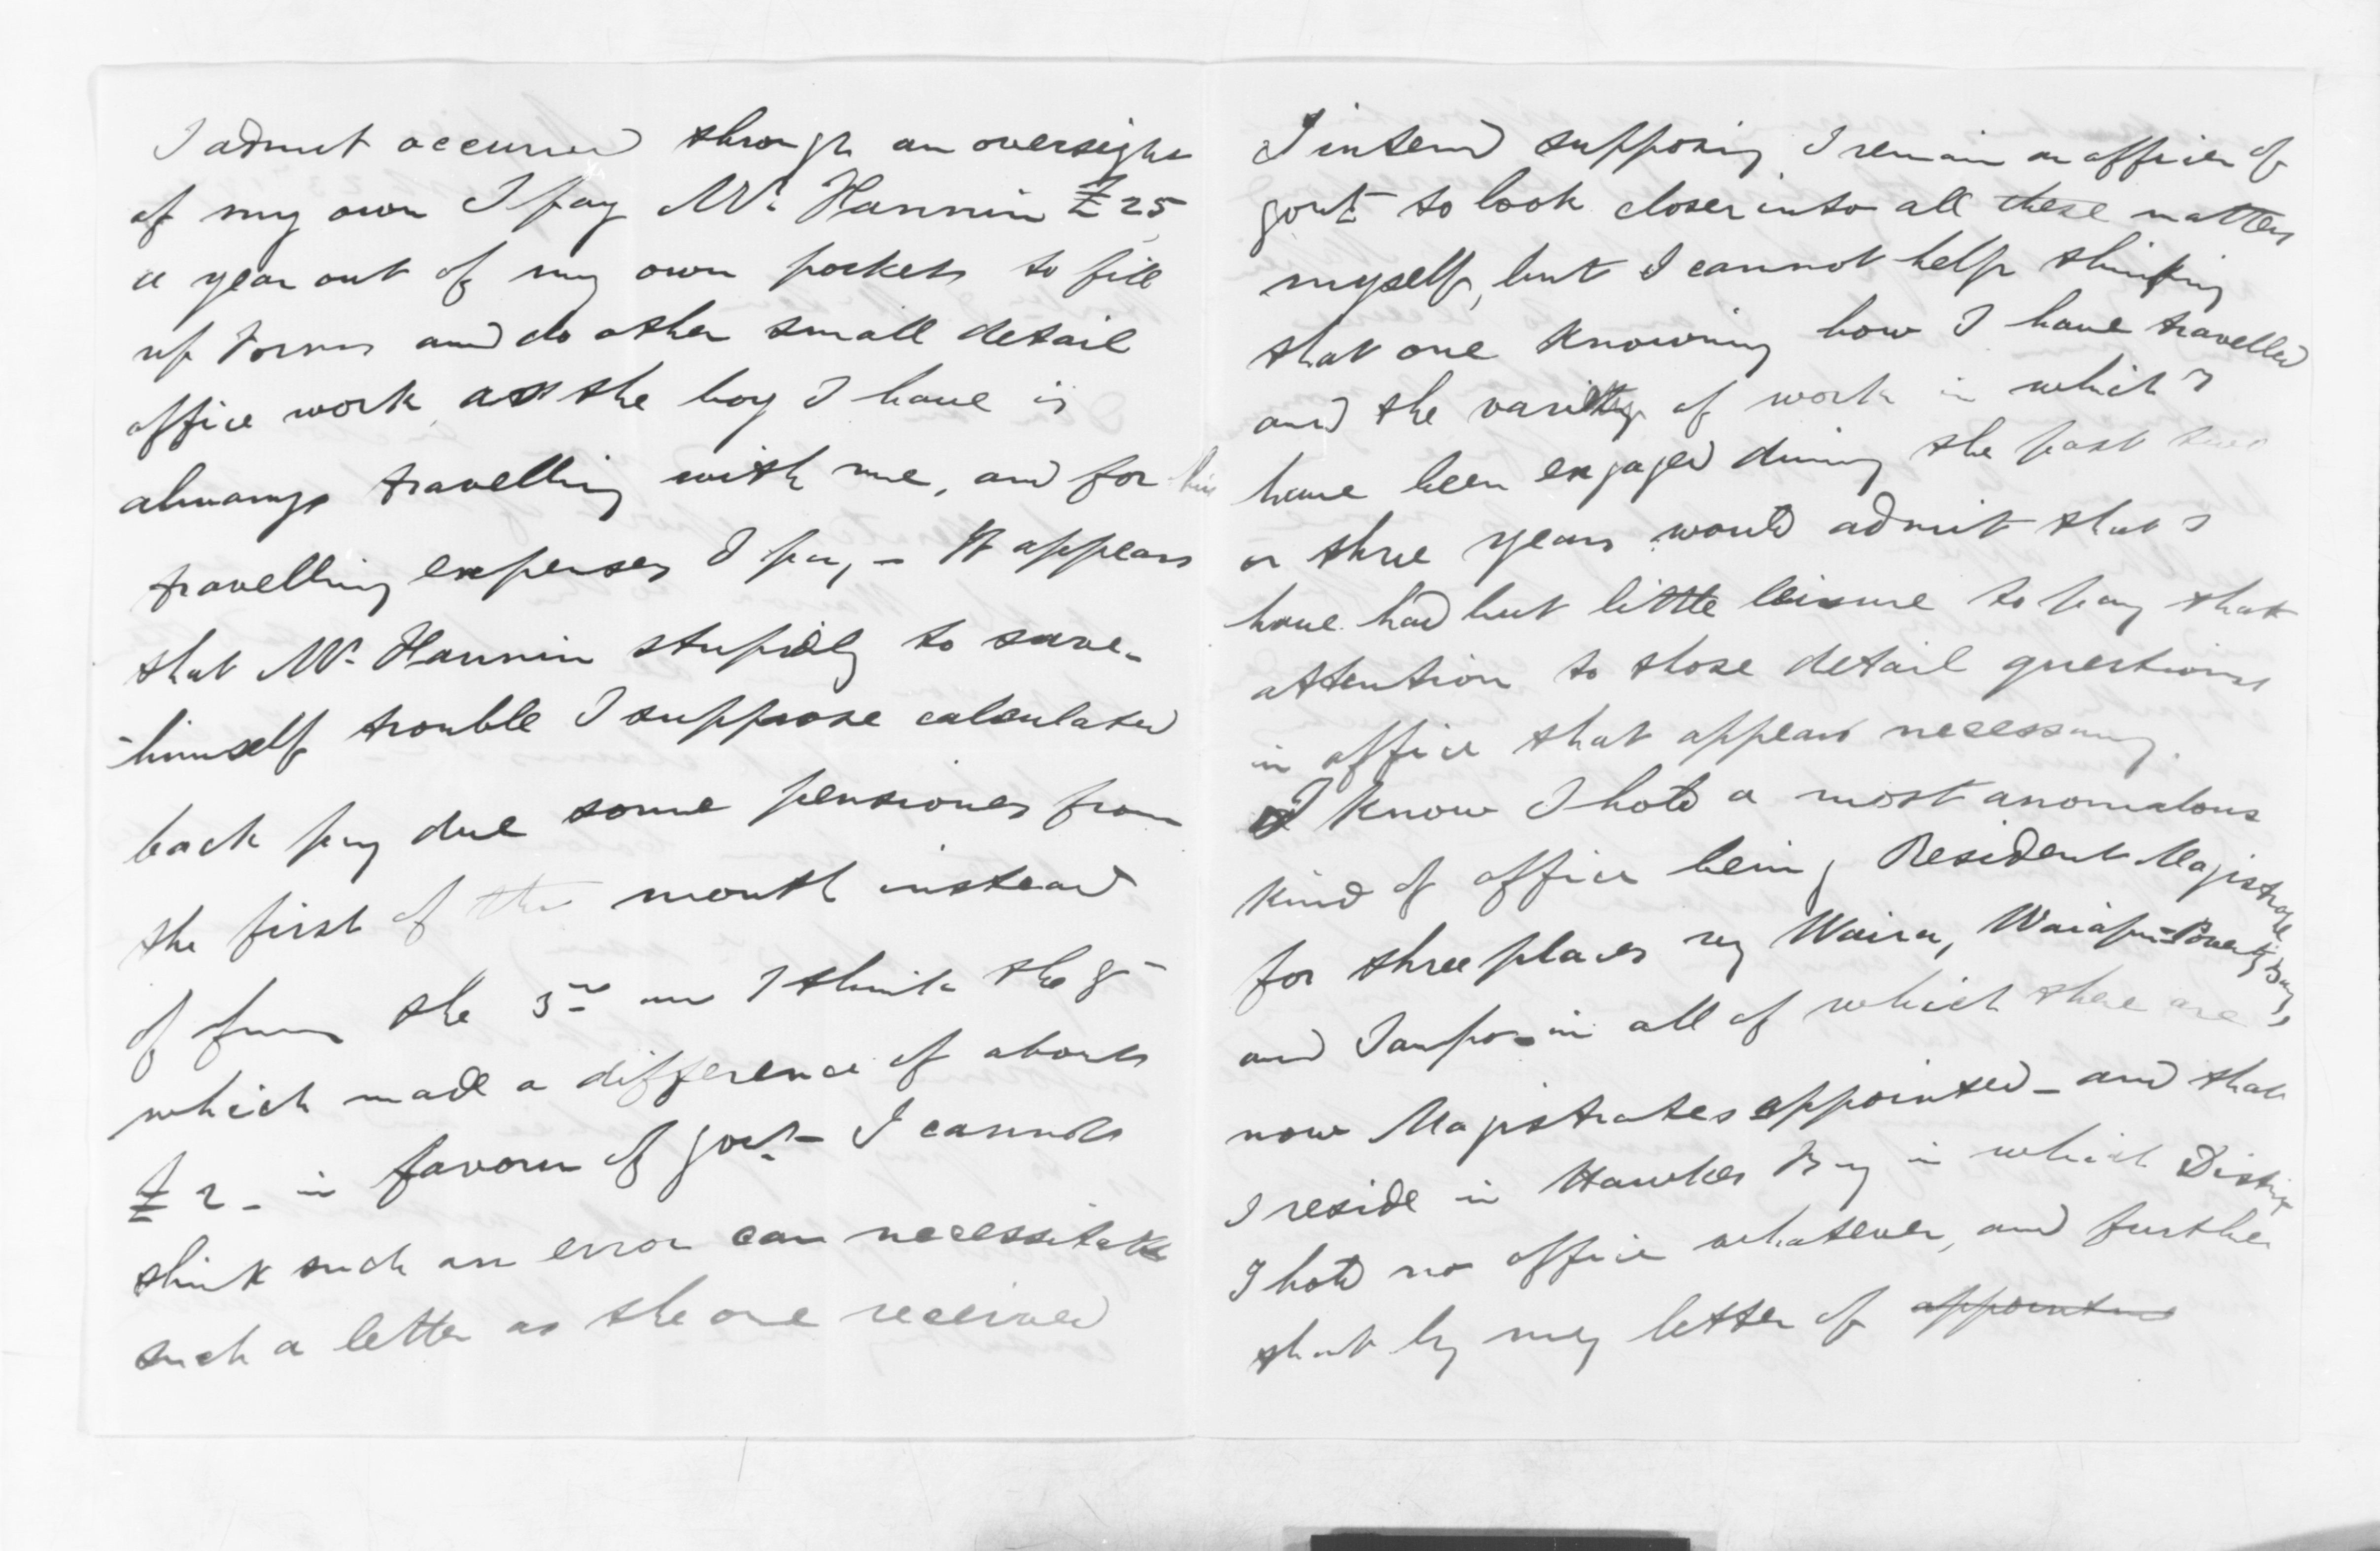 I admit occurred through an oversight
of my own I pay Mr. Hannin £25
a year out of my own pockets to fill
up Forms and do other small detail
office work as the boy I have is
always travelling with me, and for his
travelling expenses I pay, - It appears
that Mr. Hannin stupidly to save-
-himself trouble I suppose calculated
back pay due some pensioners from
the first of the month instead
of from the 3rd or I think the 8-
which made a difference of about
£2- in favour of govt.- I cannot
think such an error can necessitate
such a letter as the one received
I intend supposing I remain an officer of
govt to look closer into all these matters
myself, but I cannot help thinking
that one knowing how I have travelled
and the variety of work in which I
have been engaged during the past two
or three years would admit that I
have had but little leisure to pay that
attention to those detail questions
in office that appears necessary.
I know I hold a most anomalous
kind of office being Resident Magistrate
for three places viz Wairoa, Waiapu-Poverty Bay,
and Taupo- in all of which there are
now Magistrates appointed- and that
I reside in Hawkes Bay in which District
I hold no office whatever, and further
that by my letter of